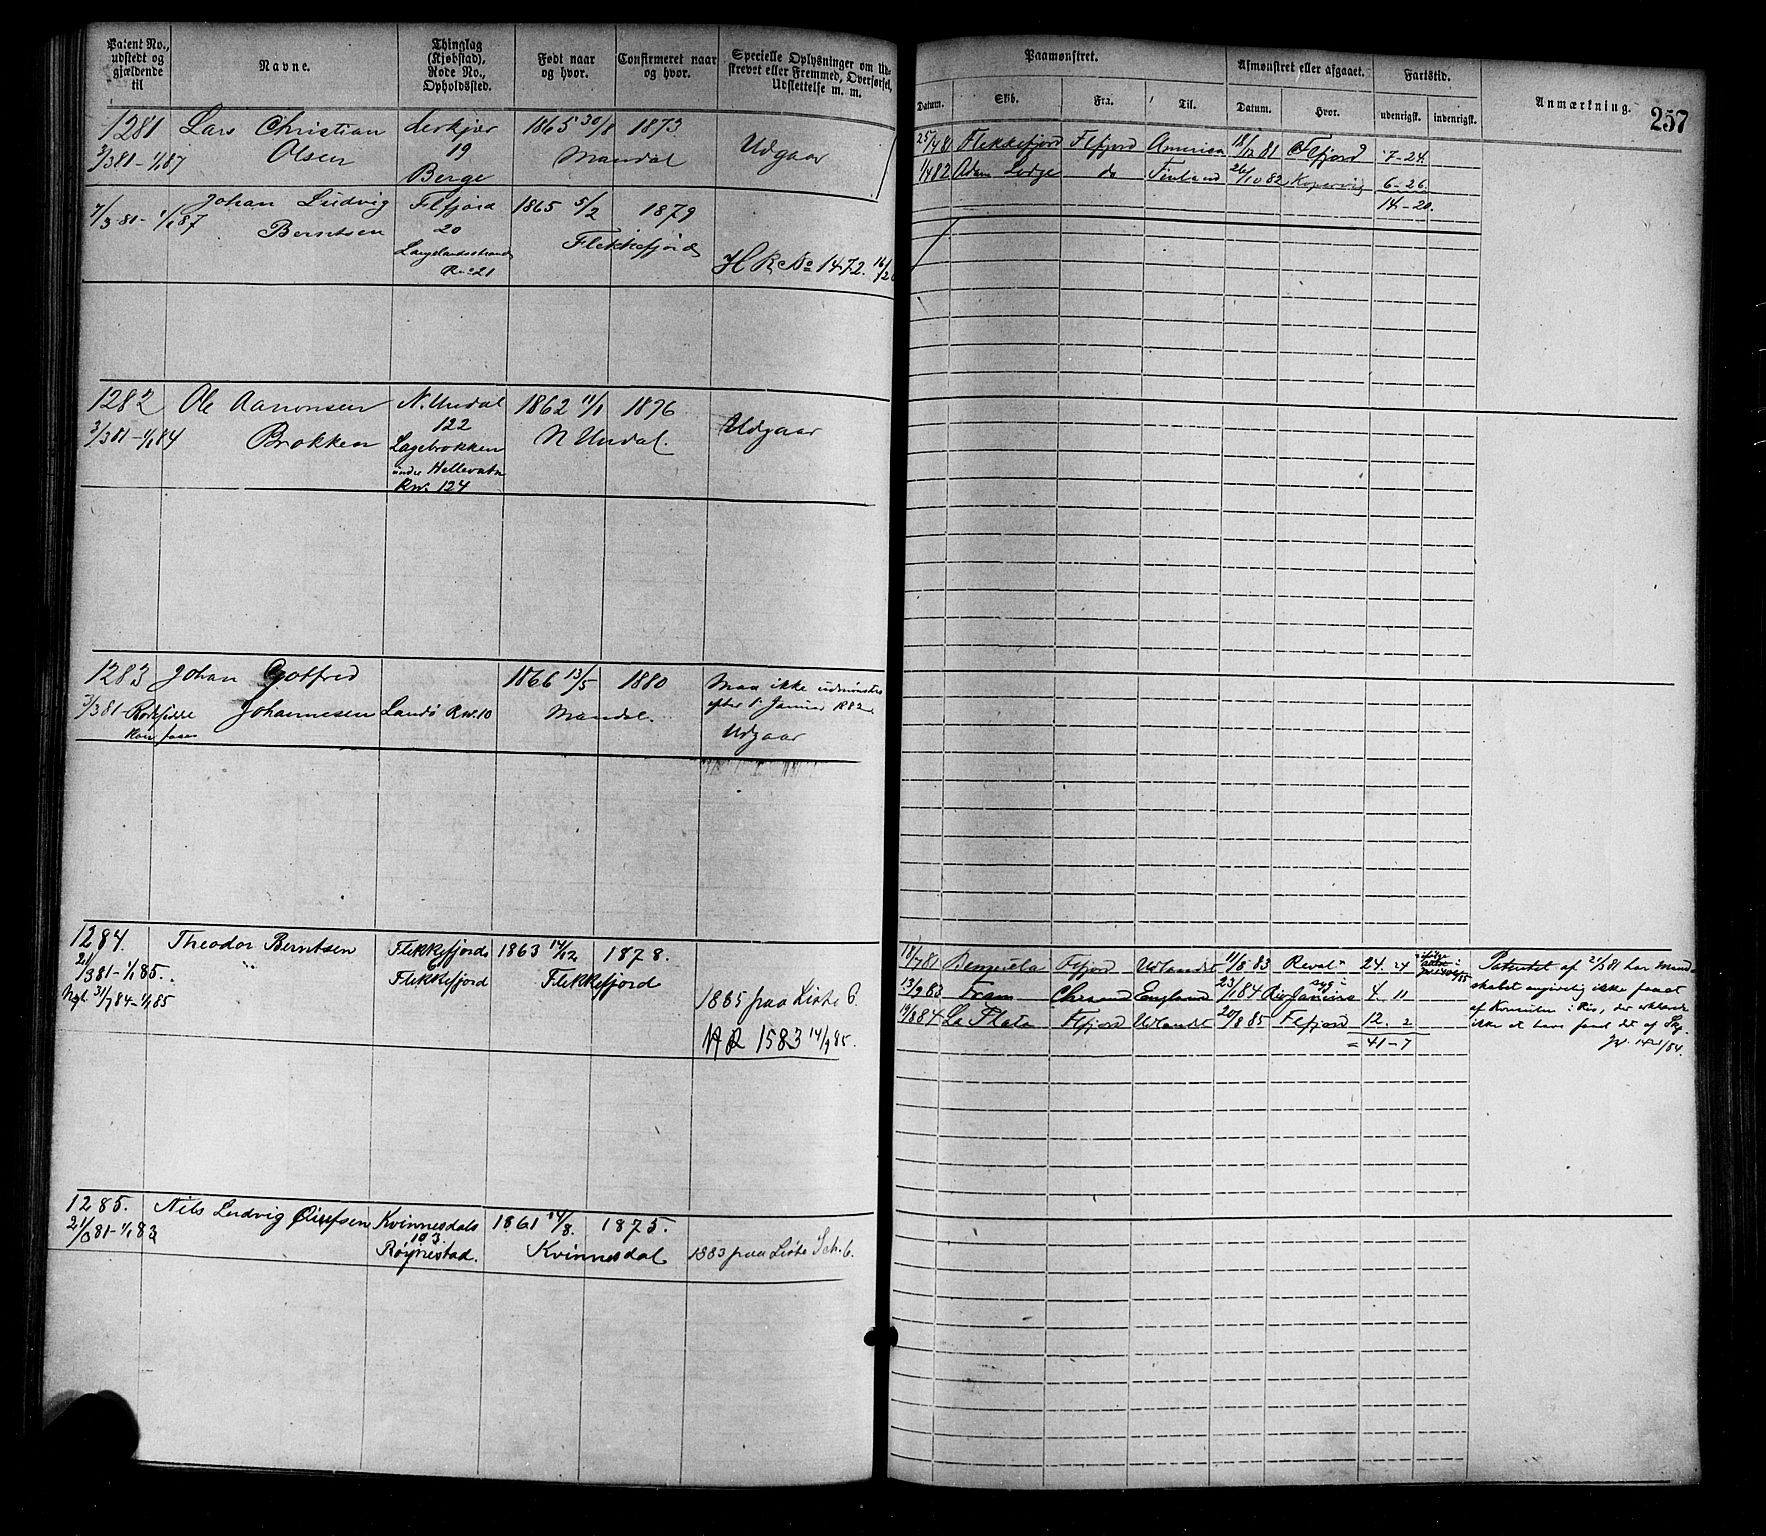 Patent No., udstedt og gjældende til
Navne.
Thinglag (Kjøbstad), Rode No., Opholdssted.
Født naar og hvor.
Confirmeret naar og hvor.
Specielle Oplysninger om Udskrevet eller Fremmed, Overførsel, Udslettelse m. m.
Paamønstret.
Datum.
Skib.
Fra.
Til.
Afmønstret eller afgaaet.
Datum.
Hvor.
Fartstid.
udenrigsk.
indenrigsk.
Anmærkning.
257
1281 Lars Christian 1865 30/8 1873.
3/3 81 - 1/1 87 Olsen 19 Mandal Udgaar
Berge
Johan Ludvig Flfjord 1865 5/2 1879
7/3 81 - 1/1 87 Berntsen 20 Flekkefjord
Langelandsstrand
R no 21 H R No 1472.
25/4 81 Flekkefjord Flfjord America 81 Flfjord 7-24
1/4 82 Adam Lodge do Finland 26/10 82 Kopervig 6-26.
14-20.
1282 Ole Aanonsen N. Undal 1862 11/1 1876
3/3 81 - 1/1 84 Brokken 122 N Undal. Udgaar
Lagebrokken
R no. 124
1283 Johan Gotfred 1866 13/5 1880 Maa ikke udmønstres
Johannesen Landø R no. 10 Mandal. efter 1. Januar 1882.
Udgaar
1284. Theodor Berntsen Flekkefjords 1863 14/12 1878.
21/3 81 - 1/1 85. 6 Flekkefjord Flekkefjord
31/7 84 - 1/1 85 1885 paa Liste 6.
H R 1583 14/9 85.
18/7 81 Flfjord Udlandet 11/5 83 Reval 24. 24
13/9 83 Fram England 23/1 84 Rio Janeiro syg 4. 11
84 La Plata Flfjord Udlandet 20/8 85 Flfjord 12. 2
= 41-7
Patentet af 21/3 81 har Mand-
skabet angivelig ikke faaet
af Konsulen i Rio, der erklærer
ikke at have faaet det af
1285. Nils Ludvig Kvinnesdals 1861 14/8. 1875.
103
Røynestad. Kvinnesdal 1883 paa Liste